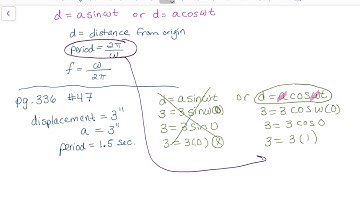 d = a sin ωt or d = a cos ωt
d = distance from origin
period = 2π/ω
f = ω/2π
pg. 336 #47
displacement = 3"
a = 3"
period = 1.5 sec.
d = a sin ωt or d = a cos ωt
3 = 3 sin ω(0) 3 = 3 cos ω(0)
3 = 3 sin 0 3 = 3 cos 0
3 = 3(0) ⓧ 3 = 3(1)